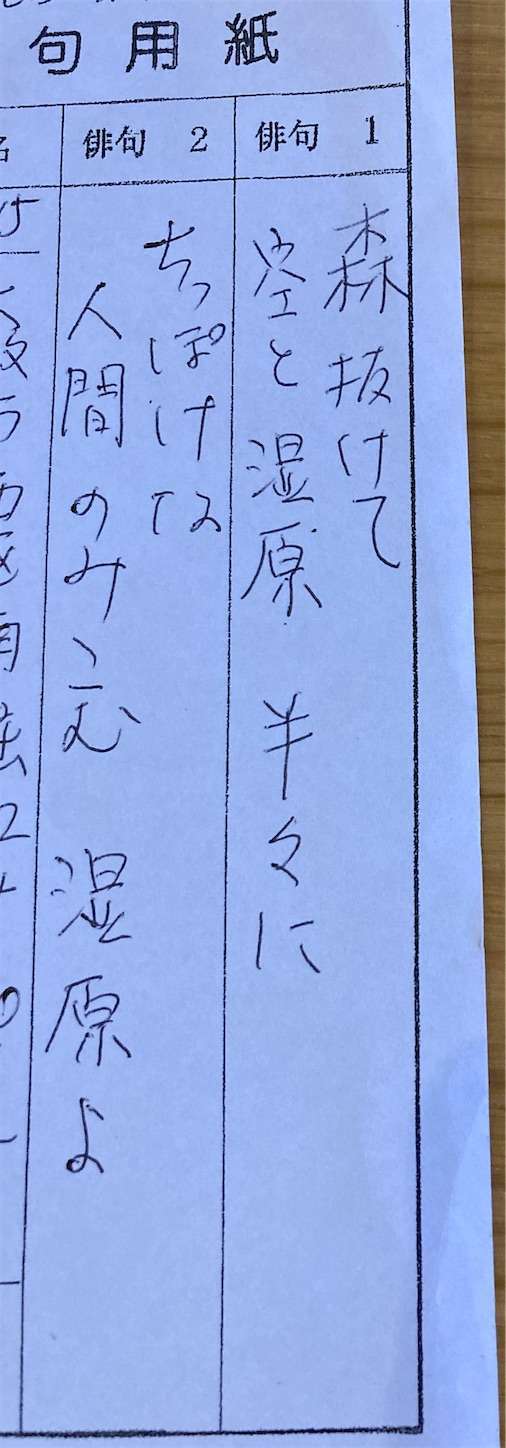 句用紙
俳句 1
森抜けて
空と湿原 半々に
俳句 2
ちっぽけな
人間のみこむ 湿原よ